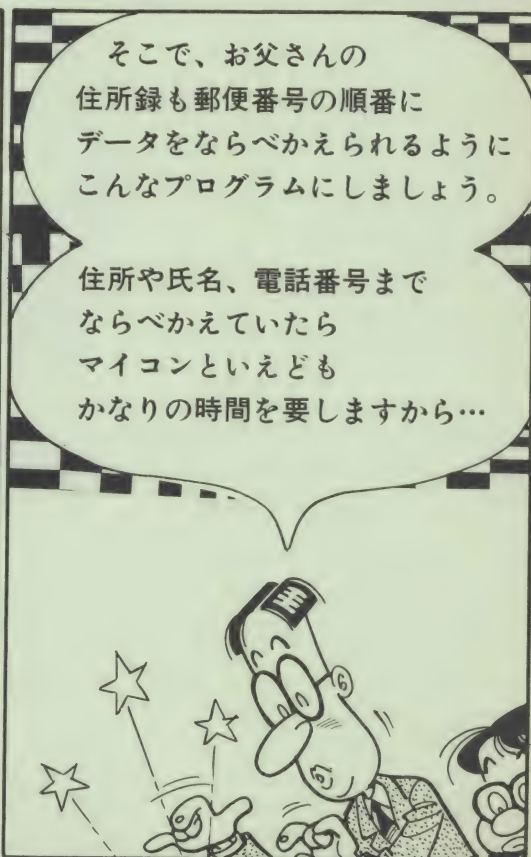 そこで、お父さんの
住所録も郵便番号の順番に
データをならべかえられるように
こんなプログラムにしましょう。
住所や氏名、電話番号まで
ならべかえていたら
マイコンといえども
かなりの時間を要しますから…